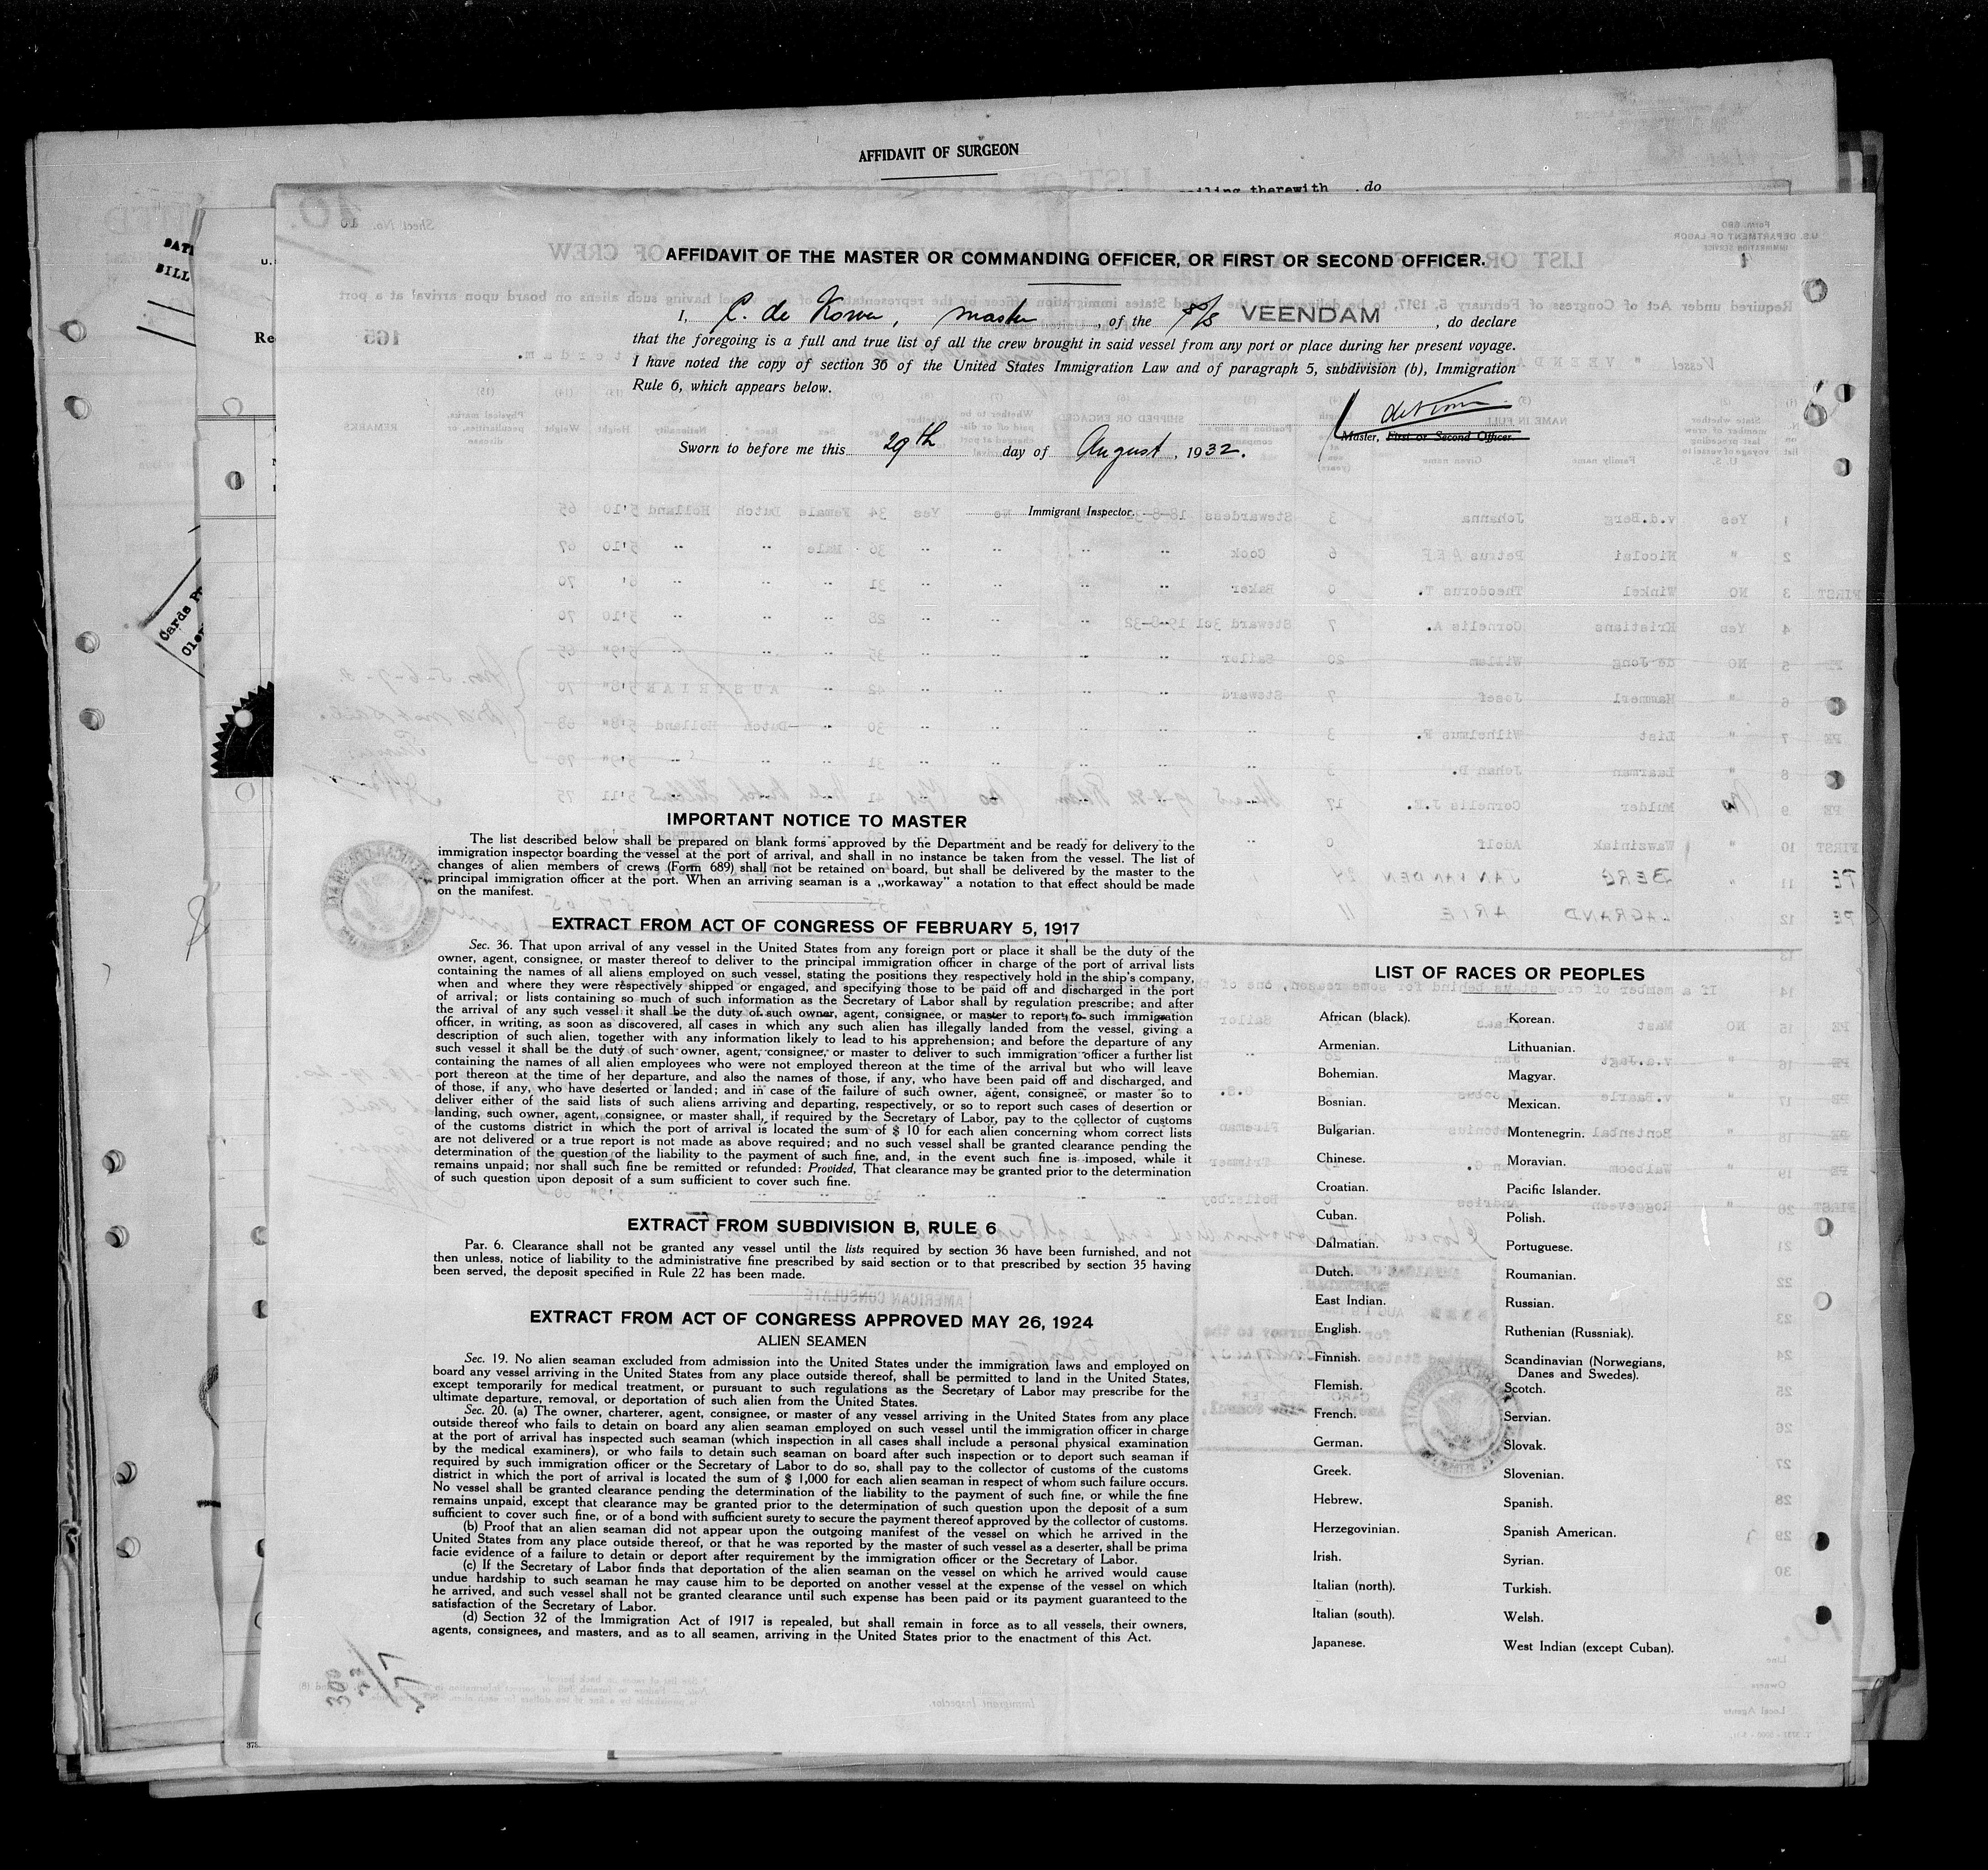 AFFIDAVIT OF SURGEON
sailing therewith , do
AFFIDAVIT OF THE MASTER OR COMMANDING OFFICER, OR FIRST OR SECOND OFFICER.
I, C. de Korver, master, of the S/S VEENDAM, do declare
that the foregoing is a full and true list of all the crew brought in said vessel from any port or place during her present voyage.
I have noted the copy of section 36 of the United States Immigration Law and of paragraph 5, subdivision (b), Immigration
Rule 6, which appears below.
Master, First or Second Officer.
Sworn to before me this 29th day of August, 1932.
Immigrant Inspector.
IMPORTANT NOTICE TO MASTER
The list described below shall be prepared on blank forms approved by the Department and be ready for delivery to the
immigration inspector boarding the vessel at the port of arrival, and shall in no instance be taken from the vessel. The list of
changes of alien members of crews (Form 689) shall not be retained on board, but shall be delivered by the master to the
principal immigration officer at the port. When an arriving seaman is a „workaway" a notation to that effect should be made
on the manifest.
EXTRACT FROM ACT OF CONGRESS OF FEBRUARY 5, 1917
Sec. 36. That upon arrival of any vessel in the United States from any foreign port or place it shall be the duty of the
owner, agent, consignee, or master thereof to deliver to the principal immigration officer in charge of the port of arrival lists
containing the names of all aliens employed on such vessel, stating the positions they respectively hold in the ship's company,
when and where they were respectively shipped or engaged, and specifying those to be paid off and discharged in the port
of arrival; or lists containing so much of such information as the Secretary of Labor shall by regulation prescribe; and after
the arrival of any such vessel it shall be the duty of such owner, agent, consignee, or master to report to such immigration
officer, in writing, as soon as discovered, all cases in which any such alien has illegally landed from the vessel, giving a
description of such alien, together with any information likely to lead to his apprehension; and before the departure of any
such vessel it shall be the duty of such owner, agent, consignee, or master to deliver to such immigration officer a further list
containing the names of all alien employees who were not employed thereon at the time of the arrival but who will leave
port thereon at the time of her departure, and also the names of those, if any, who have been paid off and discharged, and
of those, if any, who have deserted or landed; and in case of the failure of such owner, agent, consignee, or master so to
deliver either of the said lists of such aliens arriving and departing, respectively, or so to report such cases of desertion or
landing, such owner, agent, consignee, or master shall, if required by the Secretary of Labor, pay to the collector of customs
of the customs district in which the port of arrival is located the sum of $ 10 for each alien concerning whom correct lists
are not delivered or a true report is not made as above required; and no such vessel shall be granted clearance pending the
determination of the question of the liability to the payment of such fine, and, in the event such fine is imposed, while it
remains unpaid; nor shall such fine be remitted or refunded: Provided, That clearance may be granted prior to the determination
of such question upon deposit of a sum sufficient to cover such fine.
EXTRACT FROM SUBDIVISION B, RULE 6
Par. 6. Clearance shall not be granted any vessel until the lists required by section 36 have been furnished, and not
then unless, notice of liability to the administrative fine prescribed by said section or to that prescribed by section 35 having
been served, the deposit specified in Rule 22 has been made.
EXTRACT FROM ACT OF CONGRESS APPROVED MAY 26, 1924
ALIEN SEAMEN
Sec. 19. No alien seaman excluded from admission into the United States under the immigration laws and employed on
board any vessel arriving in the United States from any place outside thereof, shall be permitted to land in the United States,
except temporarily for medical treatment, or pursuant to such regulations as the Secretary of Labor may prescribe for the
ultimate departure, removal, or deportation of such alien from the United States.
Sec. 20. (a) The owner, charterer, agent, consignee, or master of any vessel arriving in the United States from any place
outside thereof who fails to detain on board any alien seaman employed on such vessel until the immigration officer in charge
at the port of arrival has inspected such seaman (which inspection in all cases shall include a personal physical examination
by the medical examiners), or who fails to detain such seaman on board after such inspection or to deport such seaman if
required by such immigration officer or the Secretary of Labor to do so, shall pay to the collector of customs of the customs
district in which the port of arrival is located the sum of $ 1,000 for each alien seaman in respect of whom such failure occurs.
No vessel shall be granted clearance pending the determination of the liability to the payment of such fine, or while the fine
remains unpaid, except that clearance may be granted prior to the determination of such question upon the deposit of a sum
sufficient to cover such fine, or of a bond with sufficient surety to secure the payment thereof approved by the collector of customs.
(b) Proof that an alien seaman did not appear upon the outgoing manifest of the vessel on which he arrived in the
United States from any place outside thereof, or that he was reported by the master of such vessel as a deserter, shall be prima
facie evidence of a failure to detain or deport after requirement by the immigration officer or the Secretary of Labor.
(c) If the Secretary of Labor finds that deportation of the alien seaman on the vessel on which he arrived would cause
undue hardship to such seaman he may cause him to be deported on another vessel at the expense of the vessel on which
he arrived, and such vessel shall not be granted clearance until such expense has been paid or its payment guaranteed to the
satisfaction of the Secretary of Labor.
(d) Section 32 of the Immigration Act of 1917 is repealed, but shall remain in force as to all vessels, their owners,
agents, consignees, and masters, and as to all seamen, arriving in the United States prior to the enactment of this Act.
LIST OF RACES OR PEOPLES
African (black).
Armenian.
Bohemian.
Bosnian.
Bulgarian.
Chinese.
Croatian.
Cuban.
Dalmatian.
Dutch.
East Indian.
English.
Finnish.
Flemish.
French.
German.
Greek.
Hebrew.
Herzegovinian.
Irish.
Italian (north).
Italian (south).
Japanese.
Korean.
Lithuanian.
Magyar.
Mexican.
Montenegrin.
Moravian.
Pacific Islander.
Polish.
Portuguese.
Roumanian.
Russian.
Ruthenian (Russniak).
Scandinavian (Norwegians,
Danes and Swedes).
Scotch.
Servian.
Slovak.
Slovenian.
Spanish.
Spanish American.
Syrian.
Turkish.
Welsh.
West Indian (except Cuban).